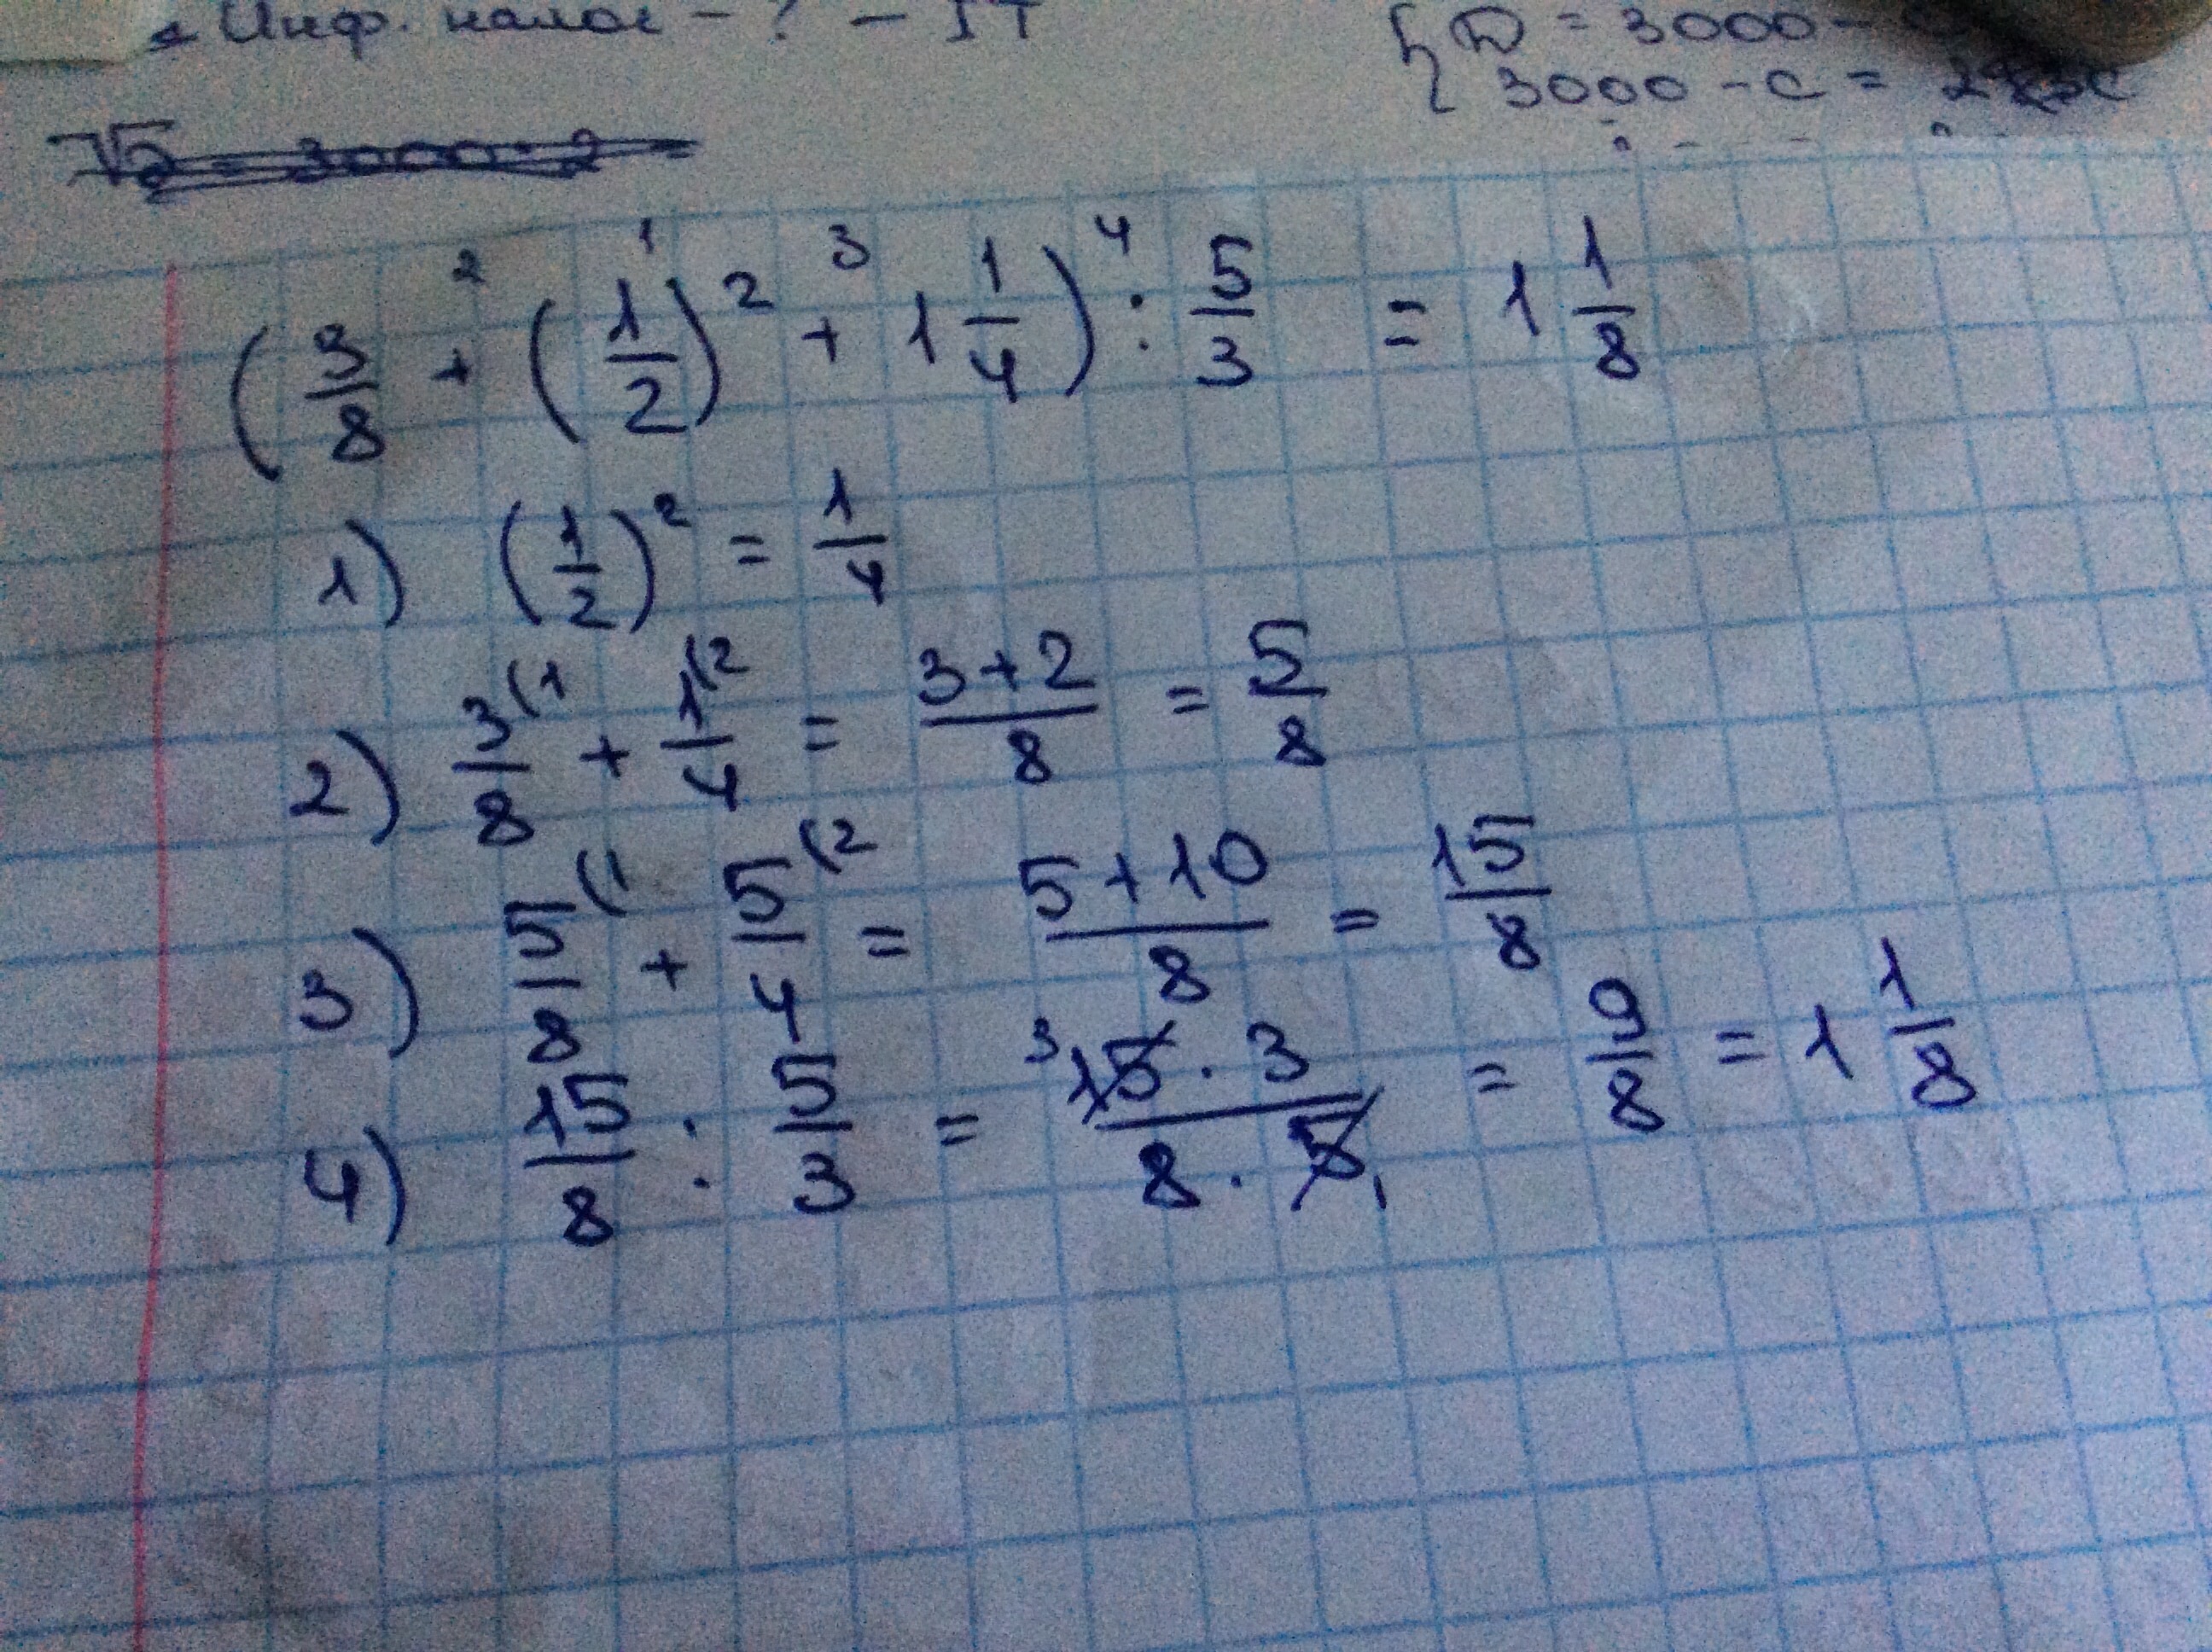 Инф. налог - ? - IT
D = 3000 -
3000 - c =
(3/8 + (1/2)² + 1 1/4) : 5/3 = 1 1/8
2 1 3 4
1) (1/2)² = 1/4
2) 3(1/8 + 1(2/4 = 3+2/8 = 5/8
3) 5(1/8 + 5(2/4 = 5+10/8 = 15/8
4) 15/8 : 5/3 = ³15·3/8·5₁ = 9/8 = 1 1/8